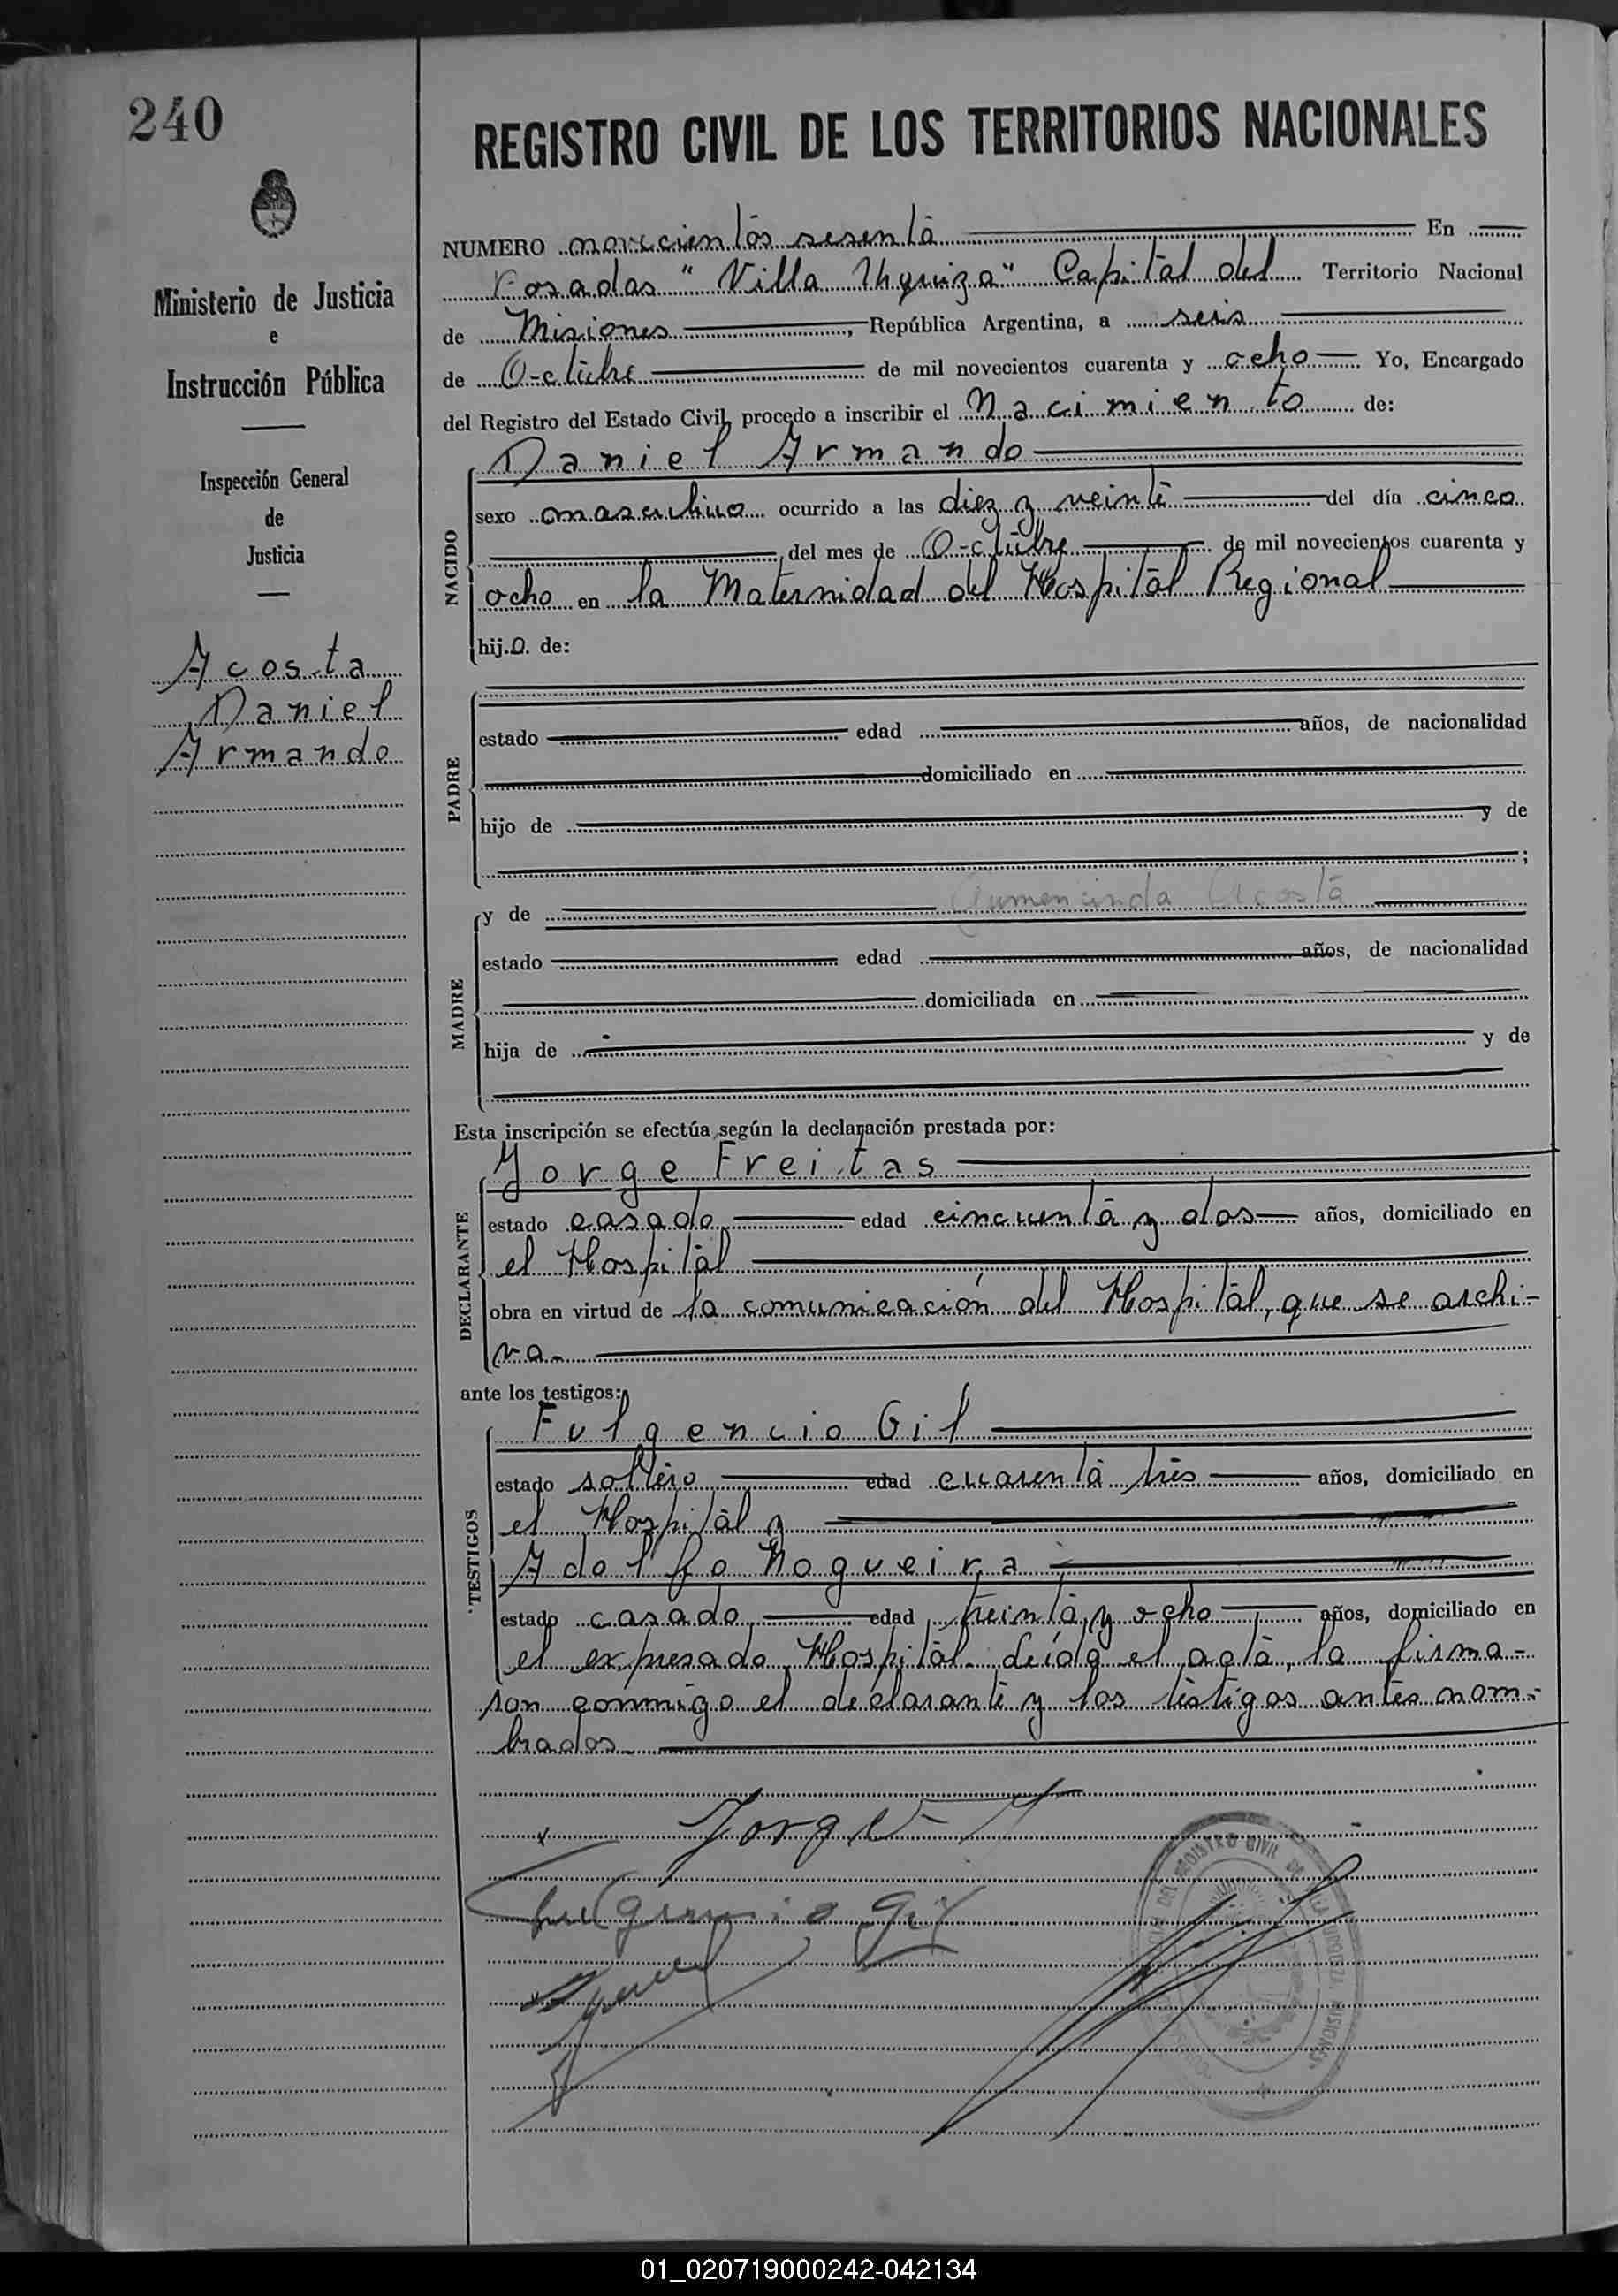 240
REGISTRO CIVIL DE LOS TERRITORIOS NACIONALES
Ministerio de Justicia
e
Instrucción Pública
Inspección General
de
Justicia
Acosta
Daniel
Armando
NUMERO novecientos sesenta En
Posadas "Villa Urquiza" Capital del Territorio Nacional
de Misiones, República Argentina, a seis
de Octubre de mil novecientos cuarenta y ocho Yo, Encargado
del Registro del Estado Civil, procedo a inscribir el Nacimiento de:
NACIDO
Daniel Armando
sexo masculino ocurrido a las diez y veinte del día cinco
del mes de Octubre de mil novecientos cuarenta y
ocho en la Maternidad del Hospital Regional
hijo. de:
PADRE
estado edad años, de nacionalidad
domiciliado en
hijo de y de
;
MADRE
y de Acosta
estado edad años, de nacionalidad
domiciliada en
hija de y de
Esta inscripción se efectúa según la declaración prestada por:
DECLARANTE
Jorge Freitas
estado casado edad cincuenta y dos años, domiciliado en
el Hospital
obra en virtud de la comunicación del Hospital, que se archi-
va.
ante los testigos:
TESTIGOS
Fulgencio Gil
estado soltero edad cuarenta tres años, domiciliado en
el Hospital y
Adolfo Nogueira
estado casado edad treinta y ocho años, domiciliado en
el expresado Hospital. Leída el acta, la firma-
ron conmigo el declarante y los testigos antes nom-
brados.
Jorge
Fulgencio Gil
REGISTRO CIVIL DE VILLA URQUIZA MISIONES
01_020719000242-042134